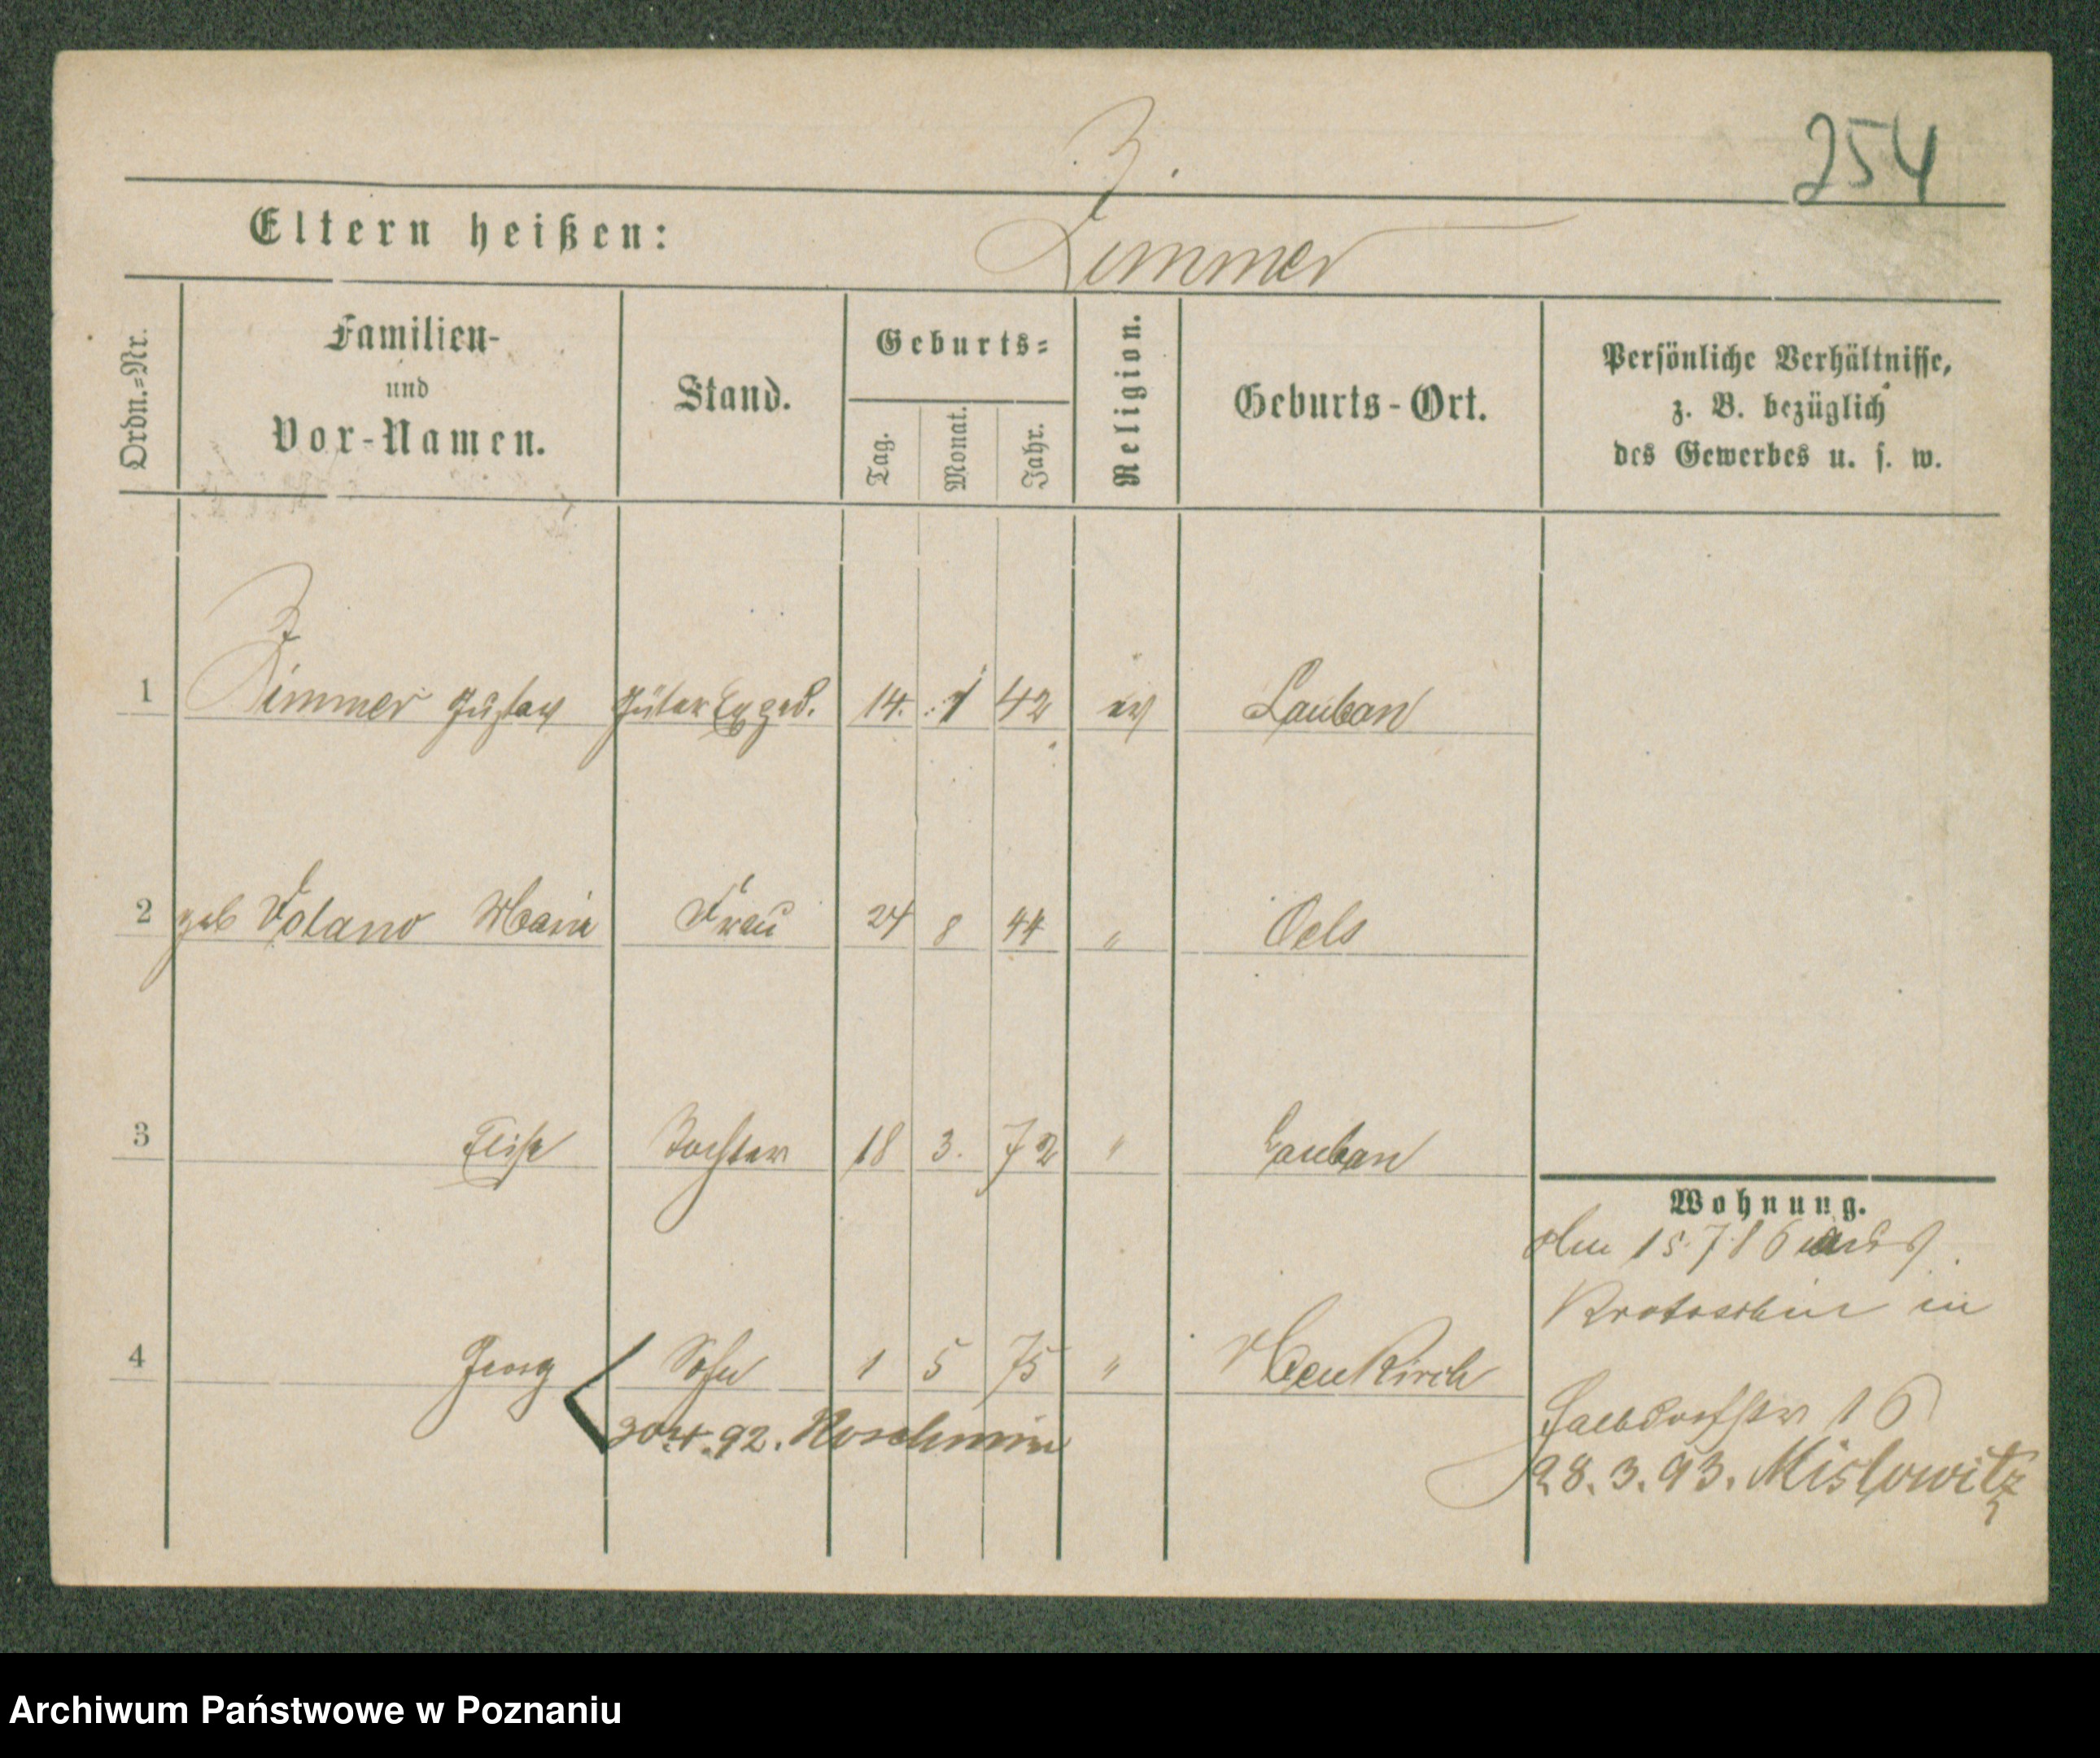 254
Z.
Eltern heißen: Zimmer
Ordn.-Nr. Familien- und Vor-Namen. Stand. Geburts- Tag. Monat. Jahr. Religion. Geburts-Ort. Persönliche Verhältnisse, z. B. bezüglich des Gewerbes u. s. w.
Z
1 Zimmer Gustav Güter Exped. 14. 1 42 ev Lauban
2 geb Volano Marie Frau 24 8 44 " Oels
3 Elise Tochter 18 3. 72 " Lauban
Wohnung.
Am 15.7.86 aus
Krotoschin in
4 Georg Sohn 1 5 75 " Neukirch
Halbdorfstr 16
30.4.92. Koschmin
28.3.93. Mislowitz
Archiwum Państwowe w Poznaniu